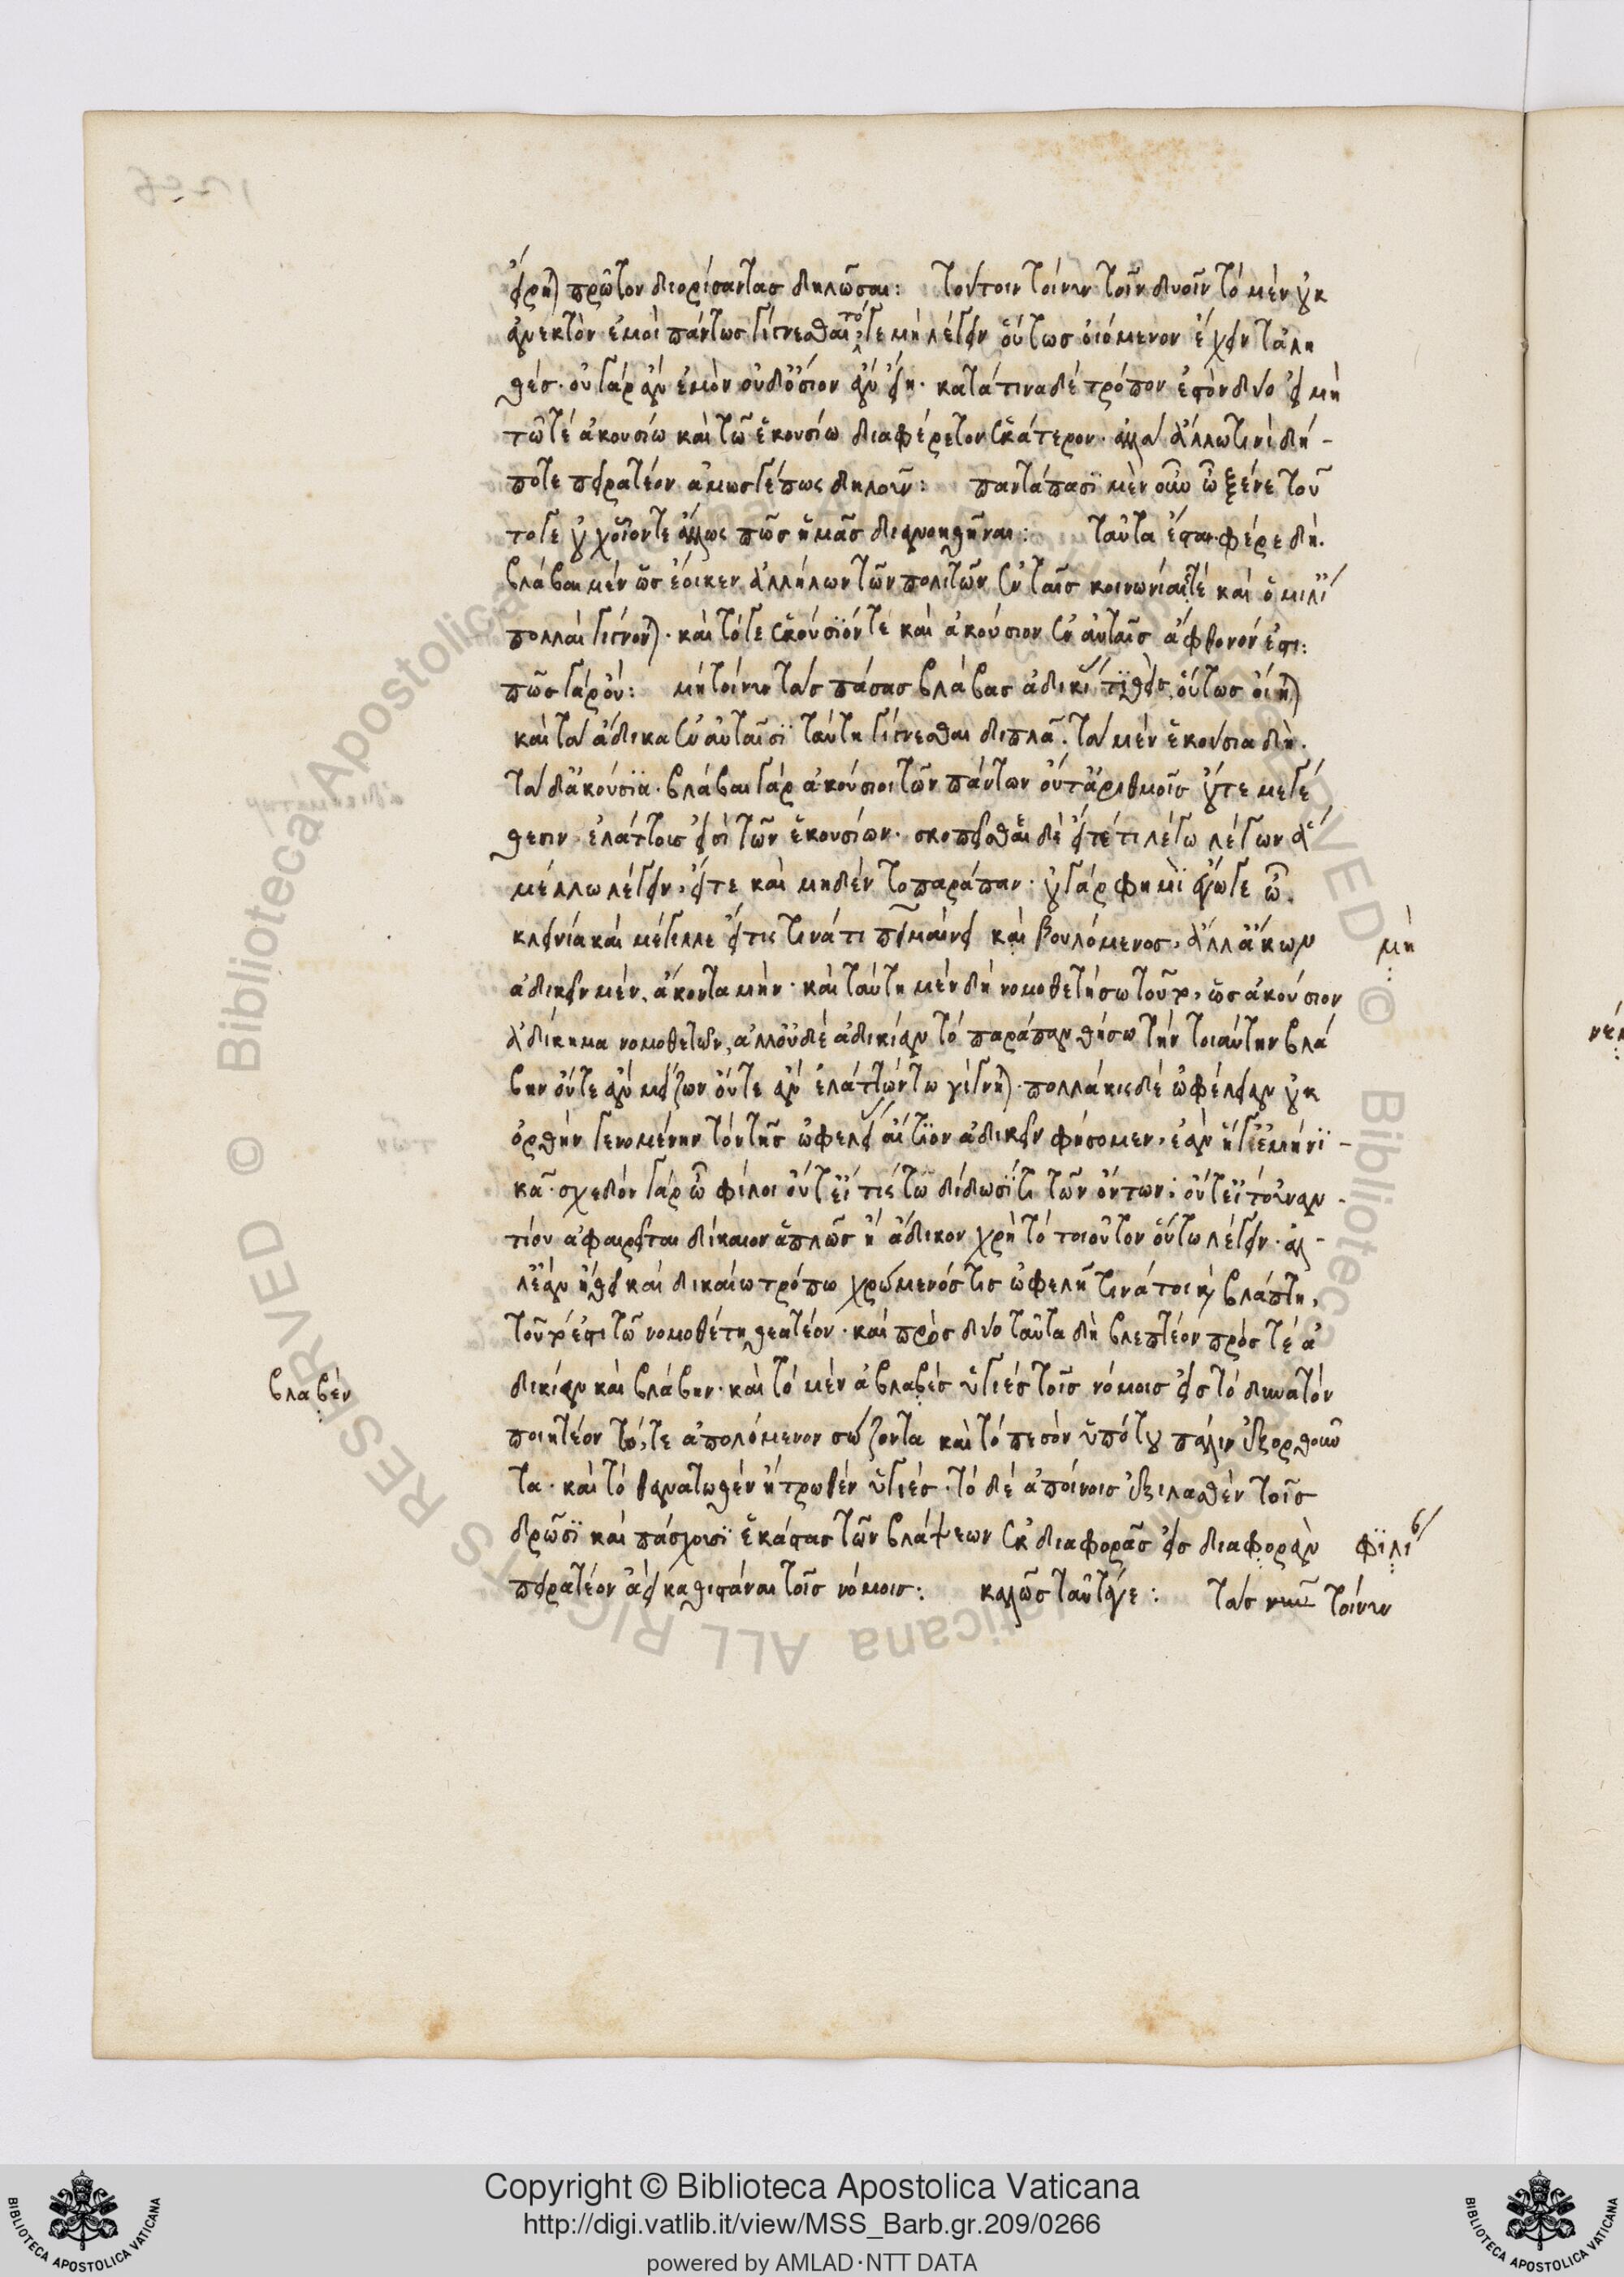 εἴρηται πρῶτον διορίσαντας δηλῶσαι: τούτοιν τοίνυν τοῖν δυοῖν τὸ μὲν οὐκ
ἀνεκτὸν ἐμοὶ πάντως γίγνεσθαι τό γε μὴ λέγειν οὕτως οἰόμενον ἔχειν τἀλη
θές· οὐ γὰρ ἂν ἐμὸν οὐδ' ὅσιον ἂν εἴη· κατὰ τίνα δὲ τρόπον ἐστὸν δύο εἰ μὴ
τῶ τε ἀκουσίω καὶ τῶ ἑκουσίω διαφέρετον ἑκάτερον· ἀλλὰ ἄλλω τινὶ δή-
ποτε πειρατέον ἀμῶς γέ πως δηλοῦν: παντάπασι μὲν οὖν ὦ ξένε τού
του γε οὐχ οἷόν τε ἄλλως πως ἡμᾶς διανοηθῆναι: ταῦτα ἔσται φέρε δή.
βλάβαι μὲν ὡς ἔοικεν ἀλλήλων τῶν πολιτῶν ἐν ταῖς κοινωνίαις τὲ καὶ ὁμιλί
πολλαὶ γίγνονται· καὶ τό γε ἑκούσιόν τε καὶ ἀκούσιον ἐν αὐταῖς ἄφθονόν ἐστι:
πῶς γὰρ οὔ: μὴ τοίνυν τὰς πάσας βλάβας ἀδικί τιθεὶς, οὕτως οἴηται
καὶ τὰ ἄδικα ἐν αὐταῖσι ταύτη γίγνεσθαι διπλᾶ. τὰ μὲν ἑκούσια δὴ.
τὰ δ' ἀκούσια· βλάβαι γὰρ ἀκούσιοι τῶν πάντων οὔτ' ἀριθμοῖς οὔτε μεγέ
θεσιν· ἐλάττους εἰσὶ τῶν ἑκουσίων· σκοπεῖσθαι δὲ εἴτέ τι λέγω λέγων ἃ
μέλλω λέγειν, εἴτε καὶ μηδὲν τοπαράπαν· οὐ γὰρ φημὶ ἔγωγε ὦ.
κλεινία καὶ μέγιλλε εἴ τις τινά τι πημαίνει καὶ βουλόμενος, ἀλλ' ἄκων
ἀδικεῖν μέν, ἄκοντα μὴν· καὶ ταύτη μὲν δὴ νομοθετήσω τοῦτο, ὡς ἀκούσιον
ἀδίκημα νομοθετῶν, ἀλλ' οὐδὲ ἀδικίαν τὸ παράπαν θήσω τὴν τοιαύτην βλά
βην οὔτε ἂν μείζων οὔτε ἂν ἐλάττων τω γίγνηται· πολλάκις δὲ ὠφέλειαν οὐκ
ὀρθὴν γενομένην τὸν τῆς ὠφελεί αἴτιον ἀδικεῖν φήσομεν, ἐὰν ἥ γ' ἐμὴ νι-
κᾶ· σχεδὸν γὰρ ὦ φίλοι οὔτ' εἴ τίς τω δίδωσί τι τῶν ὄντων: οὔτ' εἰ τοὐναν-
τίον ἀφαιρεῖται δίκαιον ἁπλῶς ἢ ἄδικον χρὴ τὸ τοιοῦτον οὕτω λέγειν· ἀλ-
λ' ἐὰν ἤθει καὶ δικαίω τρόπω χρώμενός τις ὠφελῆ τινά τοι ἢ βλάπτη,
τοῦτό ἐστι τῶ νομοθέτη θεατέον· καὶ πρὸς δύο ταῦτα δὴ βλεπτέον πρός τε ἀ
δικίαν καὶ βλάβην· καὶ τὸ μὲν ἀβλαβὲς ὑγιὲς τοῖς νόμοις εἰς τὸ δυνατὸν
ποιητέον τό, τε ἀπολόμενον σώζοντα καὶ τὸ πεσὸν ὑπό του πάλιν ἐξορθοῦν
τα· καὶ τὸ θανατωθὲν ἢ τρωθὲν ὑγιές· τὸ δὲ ἀποίνοις ἐξιλασθὲν τοῖς
δρῶσι καὶ πάσχουσι ἑκάστας τῶν βλάψεων ἐκ διαφορᾶς εἰς διαφορὰν
πειρατέον ἀεὶ καθιστάναι τοῖς νόμοις: καλῶς ταῦτά γε: τὰς νῦν τοίνυν
μὴ
βλαβὲν
φιλί